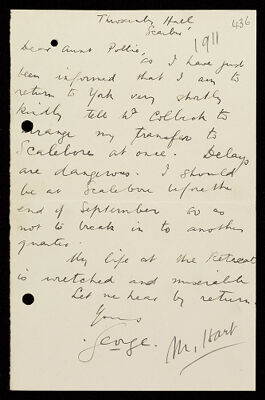 Throxenby Hall
Scarbro'
436
1911
Dear Aunt Pollie,
as I have just
been informed that I am to
return to York very shortly
kindly tell Mr Colbeck to
arrange my transfer to
Scalebor at once. Delays
are dangerous. I should
be at Scalebor before the
end of September so as
not to break in to another
quarter.
My life at the Retreat
is wretched and miserable
Let me hear by return.
Yours
George.
M. Hart